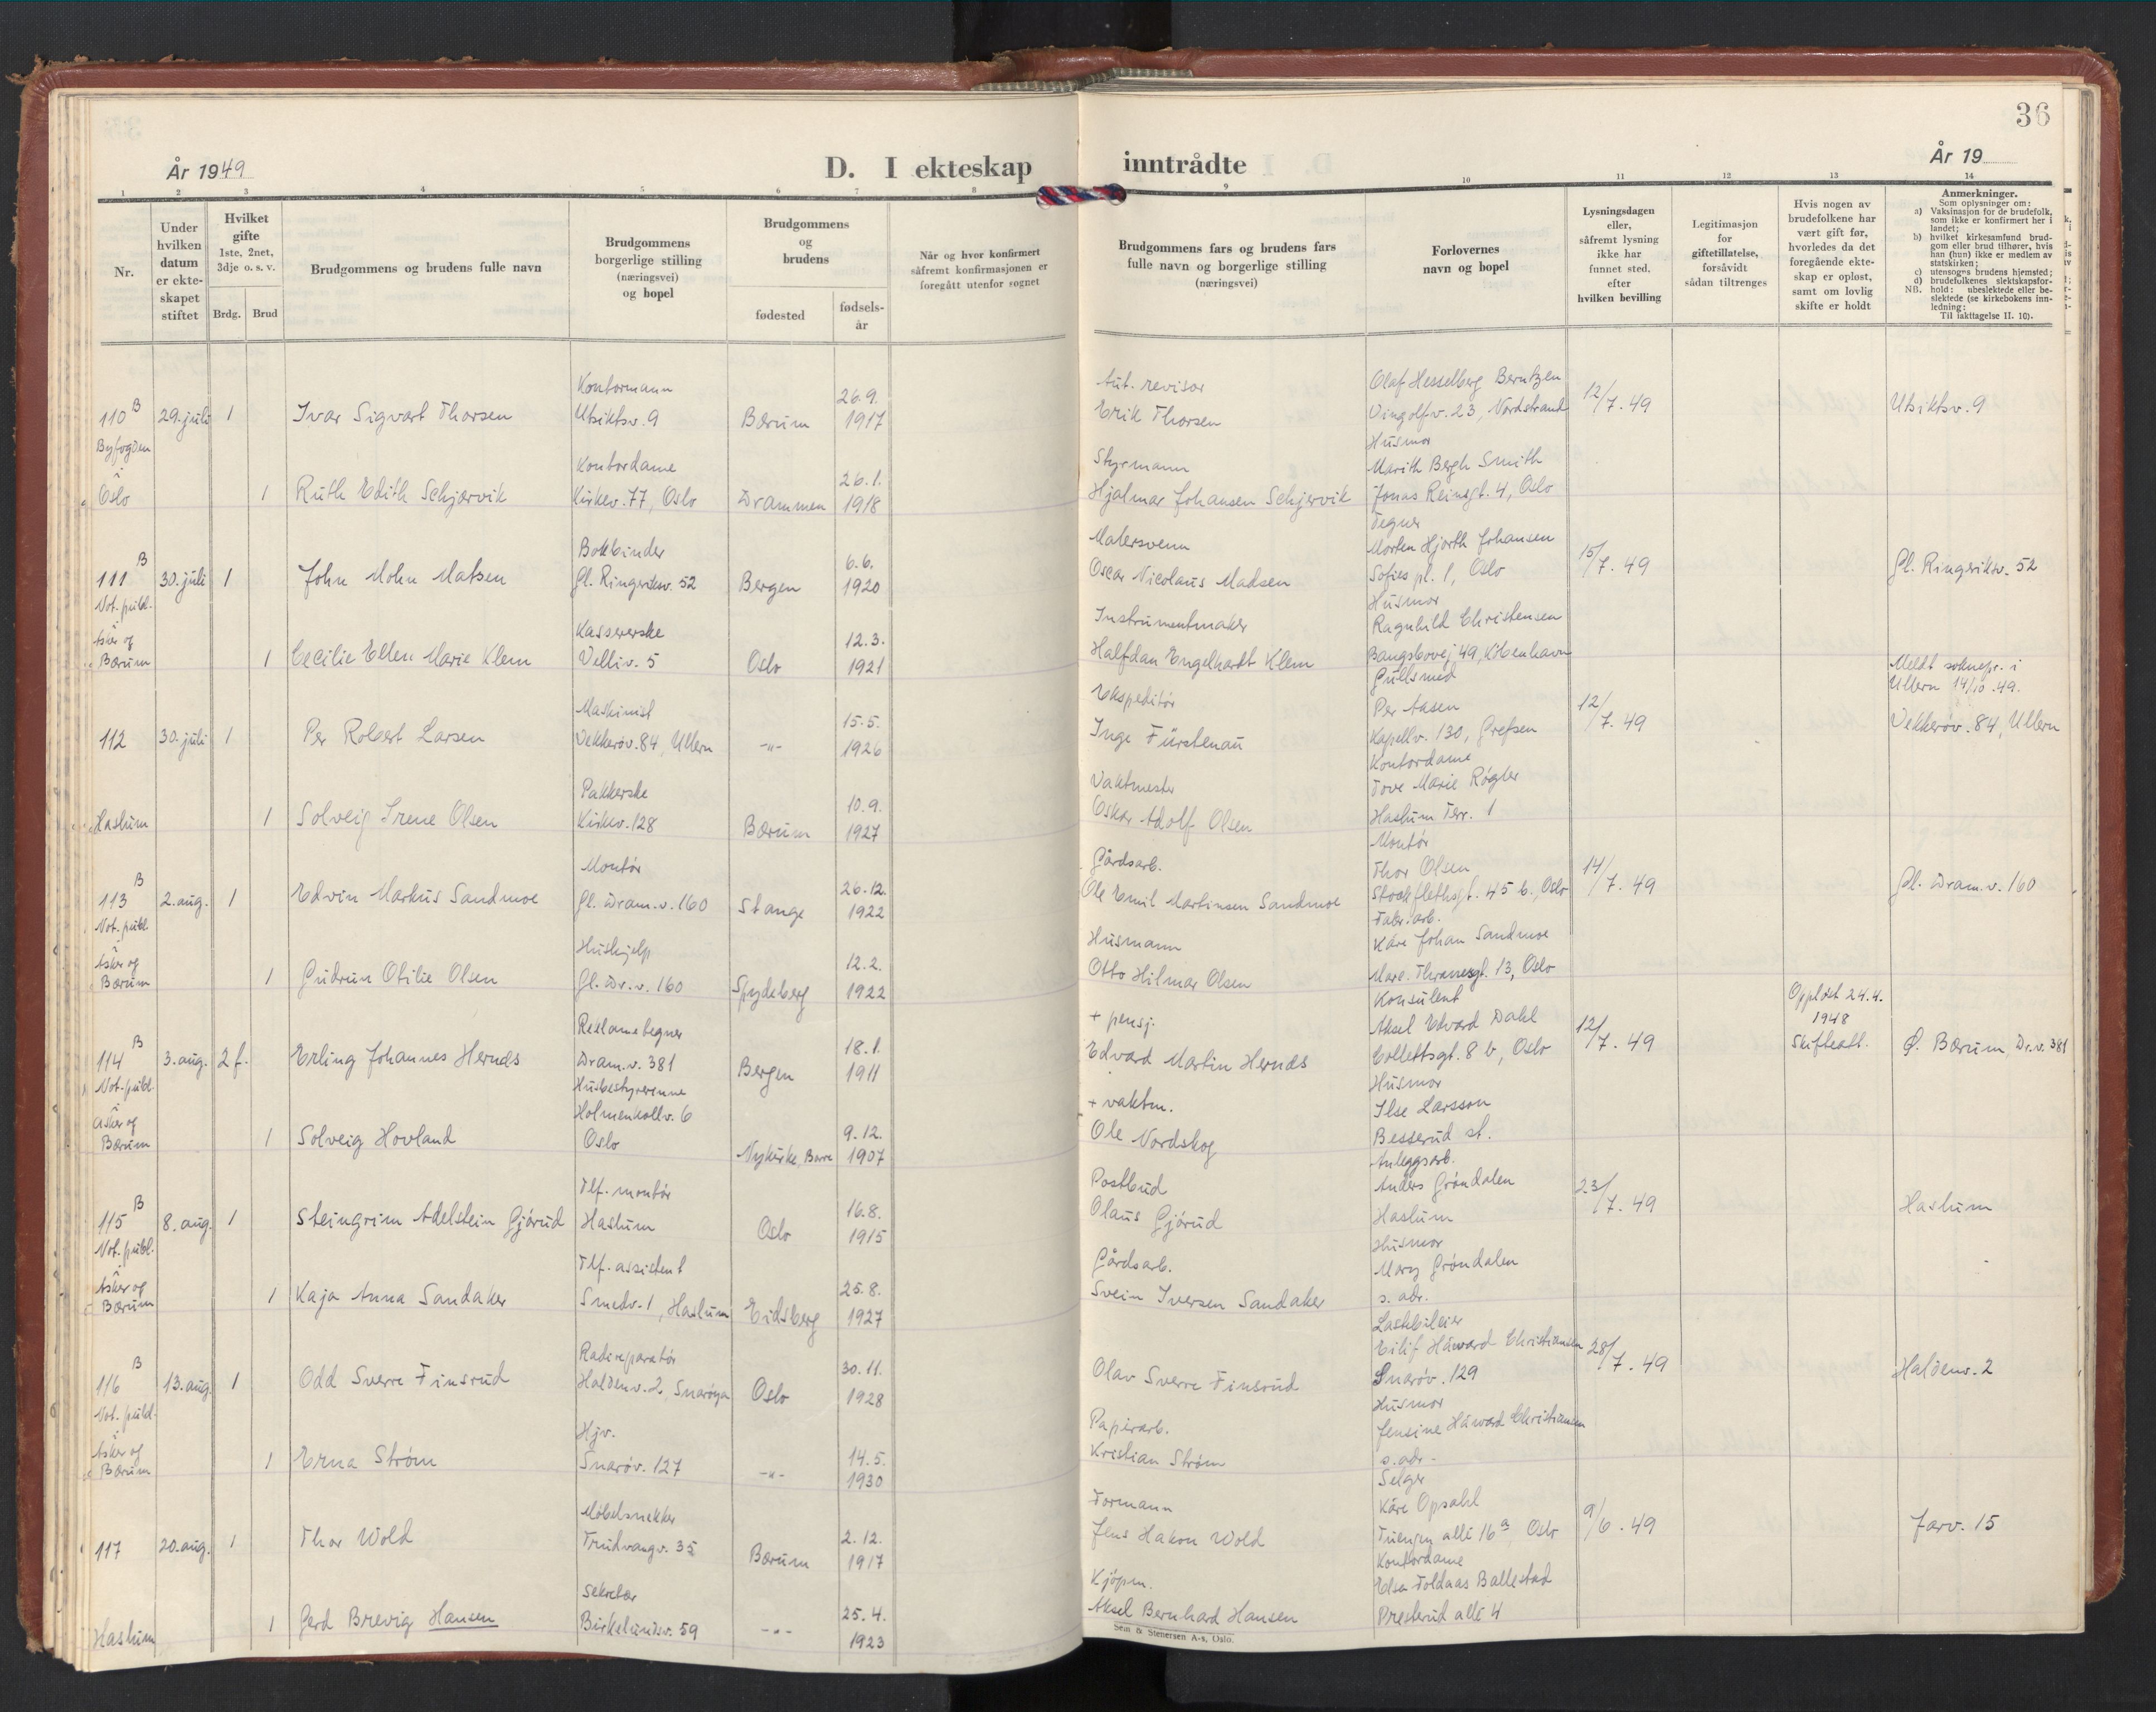 36
År 1949
D. I ekteskap inntrådte
År 19
1 2 3 4 5 6 7 8 9 10 11 12 13 14
Nr.
Under hvilken datum er ekteskapet stiftet
Hvilket gifte 1ste, 2net, 3dje o. s. v.
Brdg. Brud
Brudgommens og brudens fulle navn
Brudgommens borgerlige stilling (næringsvei) og bopel
Brudgommens og brudens
fødested
fødselsår
Når og hvor konfirmert såfremt konfirmasjonen er foregått utenfor sognet
Brudgommens fars og brudens fars fulle navn og borgerlige stilling (næringsvei)
Forlovernes navn og bopel
Lysningsdagen eller, såfremt lysning ikke har funnet sted, efter hvilken bevilling
Legitimasjon for giftetillatelse, forsåvidt sådan tiltrenges
Hvis nogen av brudefolkene har vært gift før, hvorledes da det foregående ekteskap er opløst, samt om lovlig skifte er holdt
Anmerkninger.
Som oplysninger om:
a) Vaksinasjon for de brudefolk, som ikke er konfirmert her i landet;
b) hvilket kirkesamfund brudgom eller brud tilhører, hvis han (hun) ikke er medlem av statskirken;
c) utensogns brudens hjemsted;
d) brudefolkenes slektskapsforhold: ubeslektede eller beslektede (se kirkebokens innledning:
NB. Til iakttagelse II. 10).
110 B 29. juli 1 Ivar Sigvart Thorsen
Kontormann
Utsiktsv. 9
Bærum 26.9. 1917
Aut. revisor
Erik Thorsen
Olaf Hesselberg Berntzen
Vingolfv. 23, Nordstrand
12/7. 49
Utsiktsv. 9
Byfogden i Oslo
1 Ruth Edith Schjervik
Kontordame
Kirkev. 77, Oslo
Drammen 26.1. 1918
Styrmann
Hjalmar Johansen Schjervik
Husmor
Marith Bergh Smith
Jonas Reinsgt. 4, Oslo
111 B 30. juli 1 John Mohn Matsen
Bokbinder
Gl. Ringeriksv. 52
Bergen 6.6. 1920
Malersvenn
Oscar Nicolaus Madsen
Tegner
Morten Hjorth Johansen
Sofies pl. 1, Oslo
15/7. 49
Gl. Ringeriksv. 52
Not. publ. i Asker og Bærum
1 Cecilie Ellen Marie Klem
Kassererske
Velliv. 5
Oslo 12.3. 1921
Instrumentmaker
Halfdan Engelhardt Klem
Husmor
Ragnhild Christensen
Bangsbovej 49, København
112 30. juli 1 Per Robert Larsen
Maskinist
Vekkerøv. 84, Ullern
-"- 15.5. 1926
Ekspeditør
Inge Fürstenau
Gullsmed
Per Aasen
Kapellv. 130, Grefsen
12/7. 49
Meldt soknepr. i
Ullern 14/10. 49.
Vekkerøv. 84, Ullern
Haslum
1 Solveig Irene Olsen
Pakkerske
Kirkev. 128
Bærum 10.9. 1927
Vaktmester
Oskar Adolf Olsen
Kontordame
Tove Marie Røgler
Haslum Terr. 1
113 B 2. aug. 1 Edvin Markus Sandmoe
Montør
Gl. Dram.v. 160
Stange 26.12. 1922
Gårdsarb.
Ole Emil Martinsen Sandmoe
Montør
Thor Olsen
Stockflethsgt. 45 b., Oslo
14/7. 49
Gl. Dram.v. 160
Not. publ. i Asker og Bærum
1 Gudrun Otilie Olsen
Hushjelp
Gl. Dr.v. 160
Spydeberg 12.2. 1922
Husmann
Otto Hilmar Olsen
Fabr.arb.
Kåre Johan Sandmoe
Marc. Thranesgt. 13, Oslo
114 B 3. aug. 2 f. Erling Johannes Hernæs
Reklametegner
Dram.v. 381
Bergen 18.1. 1911
+ pensj.
Edvard Martin Hernæs
Konsulent
Aksel Edvard Dahl
Collettsgt. 8 b, Oslo
12/7. 49
Oppløst 24.4. 1948
Skifteatt.
Ø. Bærum, Dr.v. 381
Not. publ. i Asker og Bærum
1 Solveig Hovland
Husbestyrerinne
Holmenkollv. 6
Oslo
Nykirke, Borre 9.12. 1907
+ vaktm.
Ole Nordskog
Husmor
Ilse Larsson
Besserud st.
115 B 8. aug. 1 Steingrim Adelstein Gjørud
Tlf. montør
Haslum
Oslo 16.8. 1915
Postbud
Olaus Gjørud
Anleggsarb.
Anders Grøndalen
Haslum
23/7. 49
Haslum
Not. publ. i Asker og Bærum
1 Kaja Anna Sandaker
Tlf. assistent
Smedv. 1, Haslum
Eidsberg 25.8. 1927
Gårdsarb.
Svein Iversen Sandaker
Husmor
Mary Grøndalen
s. adr.
116 B 13. aug. 1 Odd Sverre Finsrud
Radioreparatør
Haldenv. 2, Snarøya
Oslo 30.11. 1928
Olav Sverre Finsrud
Lastebileier
Eilif Håvard Christiansen
Snarøv. 129
28/7. 49
Haldenv. 2
Not. publ. i Asker og Bærum
1 Erna Strøm
Hjv.
Snarøv. 127
-"- 14.5. 1930
Papirarb.
Kristian Strøm
Husmor
Jensine Håvard Christiansen
s. adr.
117 20. aug. 1 Thor Wold
Møbelsnekker
Trudvangv. 35
Bærum 2.12. 1917
Formann
Jens Hakon Wold
Selger
Kåre Opsahl
Tuengen allé 16 a, Oslo
9/6. 49
Jarv. 15
Haslum
1 Gerd Brevig Hansen
Sekretær
Birkelundsv. 59
-"- 25.4. 1923
Kjøpm.
Aksel Bernhard Hansen
Kontordame
Elsa Foldaas Ballestad
Presterud allé 4
Sem & Stenersen A-s, Oslo.